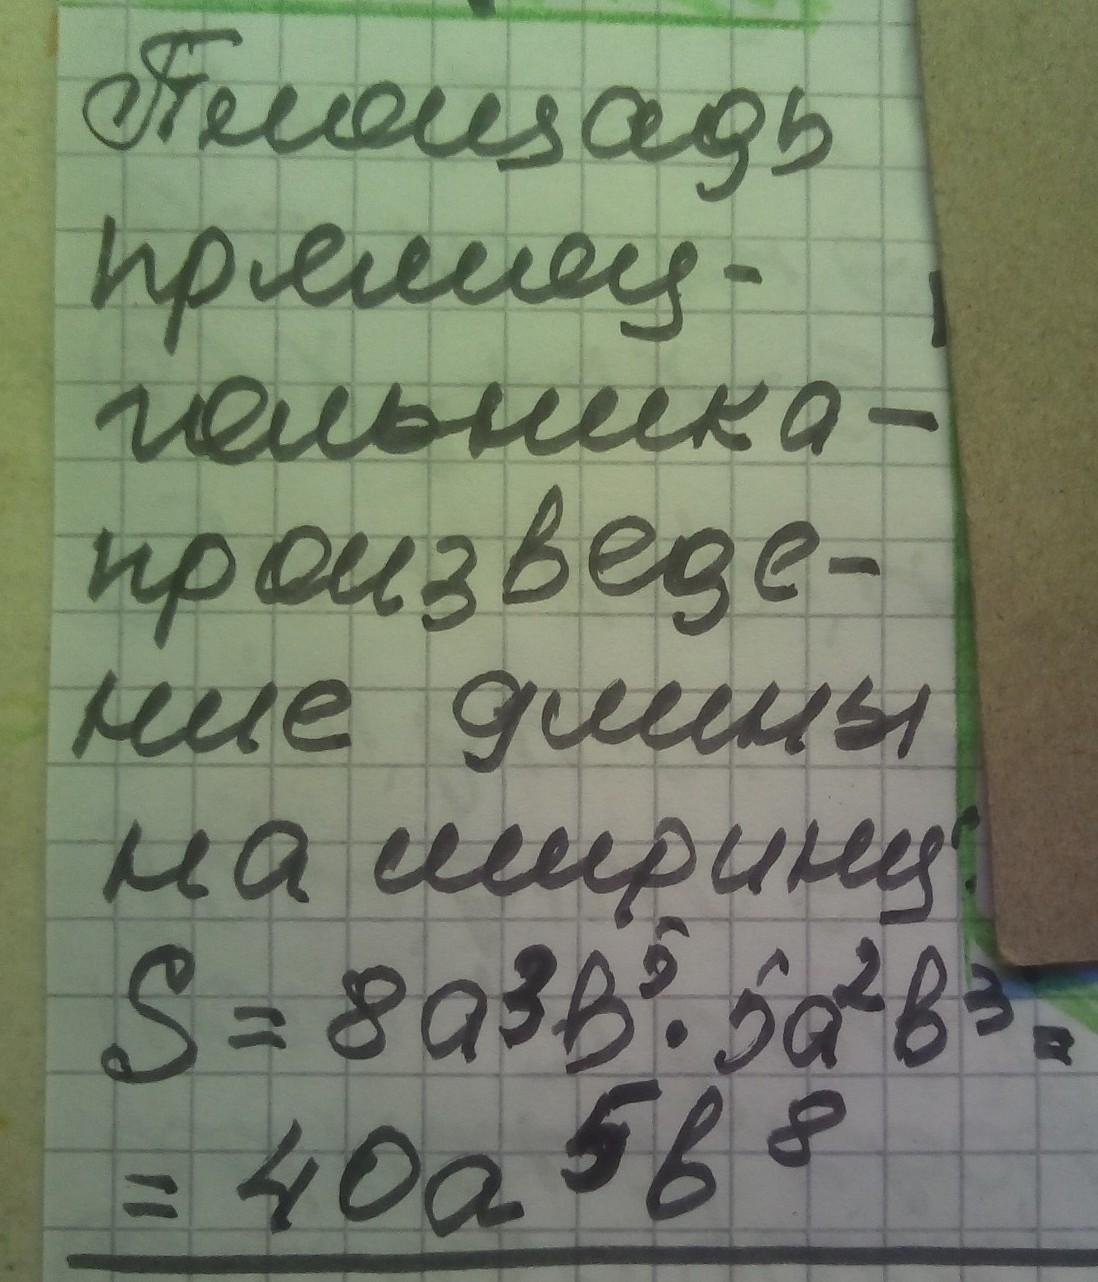 Площадь
прямоу-
гольника -
произведе-
ние длины
на ширину:
S = 8a³b⁵ · 5a²b³ =
= 40a⁵b⁸